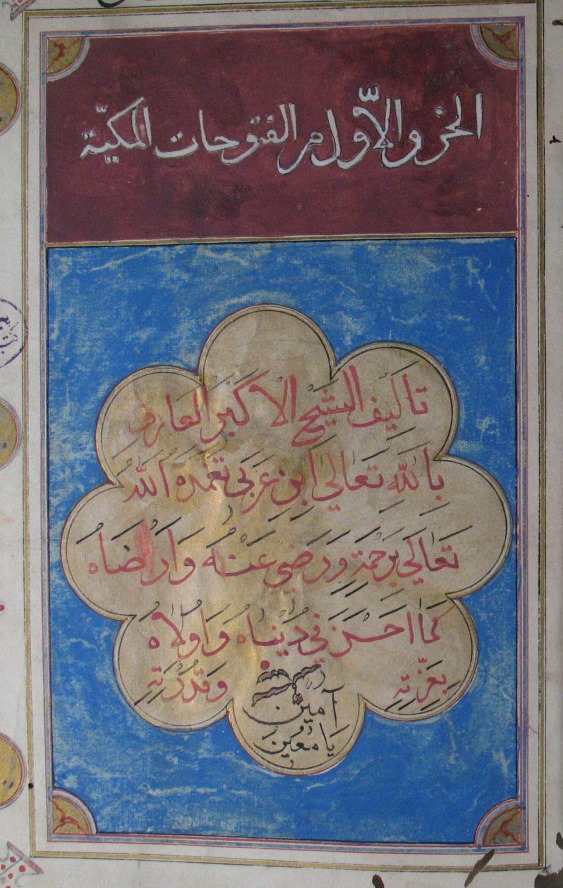 الجزو الاوّل من الفتوحات المكيّة
تاليف الشيخ الاكبر العارف
بالله تعالي ابن عربي تغمده الله
تعالي برحمته ورضي عنه وارضاه
كما احسن في دنياه واولاه
بعزّته وقدرته
آمين
يا معين